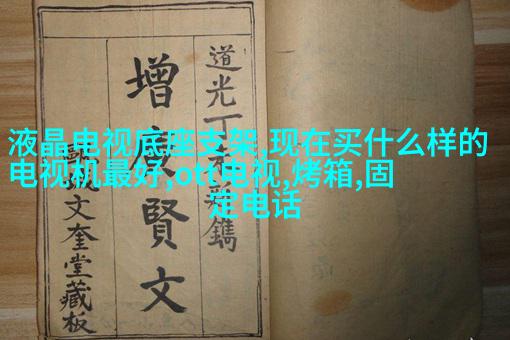 液晶电视底座支架,现在买什么样的
电视机最好,ott电视,烤箱,固
定电话
道光丁鐫
增廣賢文
文奎堂藏板